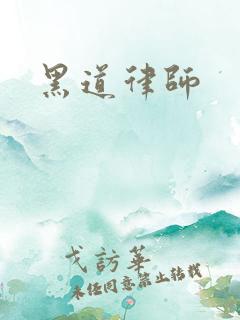 黑道律師
戈訪華
未经同意禁止转载